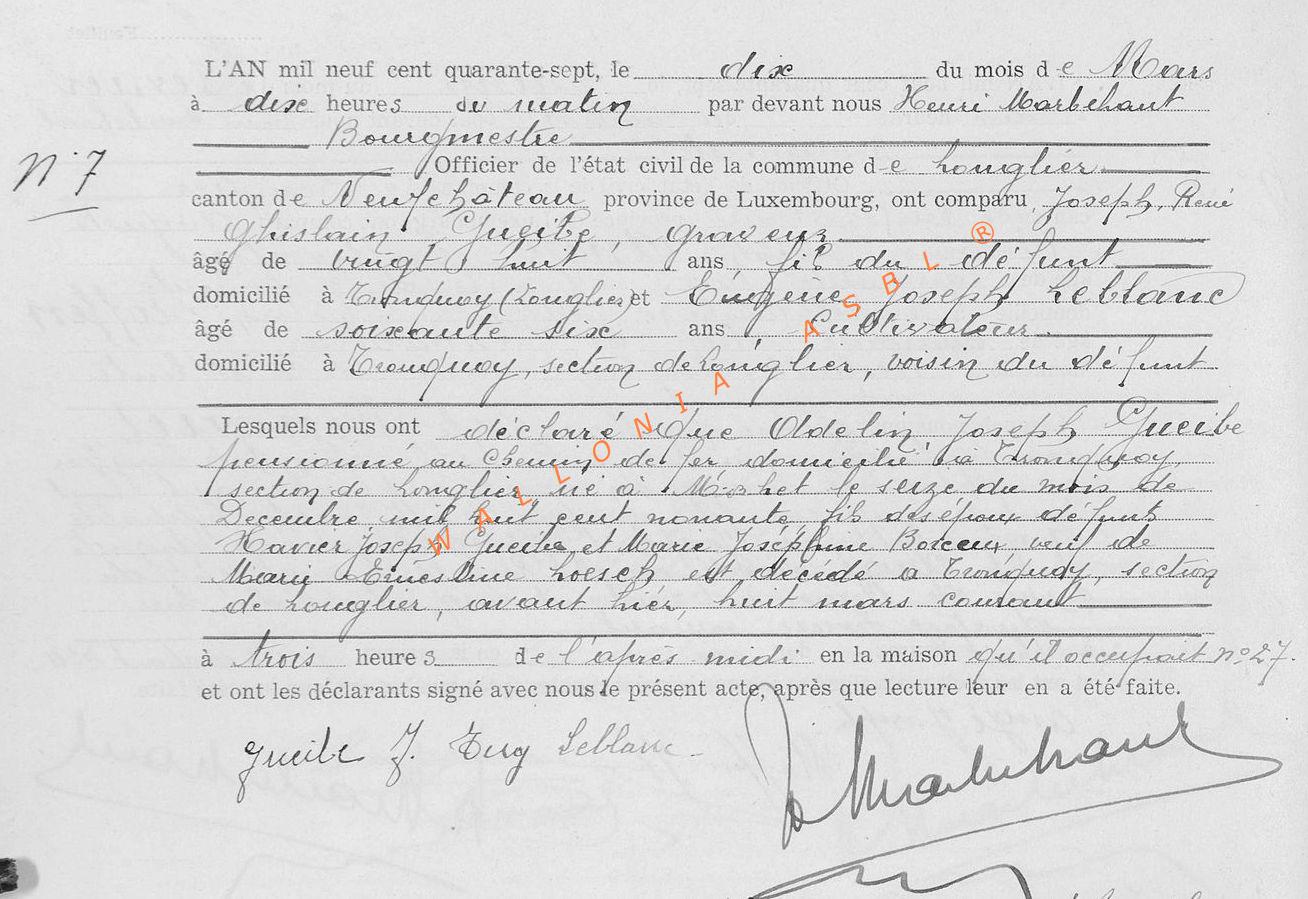 L'AN mil neuf cent quarante-sept, le dix du mois de Mars
à dix heures du matin par devant nous Henri Marbehant
Bourgmestre
N° 7
Officier de l'état civil de la commune de Longlier
canton de Neufchâteau province de Luxembourg, ont comparu Joseph, René
Ghislain Gueibe, graveur
âgé de vingt huit ans, fils du défunt
domicilié à Tronquoy (Longlier) et Eugène Joseph Leblanc
âgé de soixante six ans, Cultivateur
domicilié à Tronquoy, section de Longlier, voisin du défunt
Lesquels nous ont déclaré que Odelin, Joseph Gueibe
pensionné au Chemin de fer domicilié à Tronquoy,
section de Longlier, né à le seize du mois de
Décembre mil huit cent nonante, fils des époux défunts
Xavier Joseph Gueibe et Marie Joséphine veuf de
Marie Ernestine Loesch, est décédé à Tronquoy, section
de Longlier, avant hier, huit mars courant
à trois heures de l'après midi en la maison qu'il occupait n° 27.
et ont les déclarants signé avec nous le présent acte, après que lecture leur en a été faite.
Gueibe J. Eug Leblanc
Marbehant
WALLONIA ASBL ®